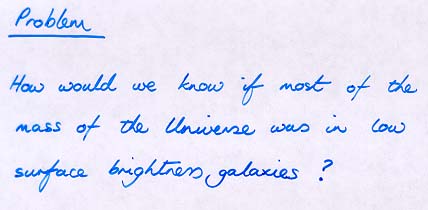 Problem
How would we know if most of the
mass of the Universe was in low
surface brightness galaxies ?